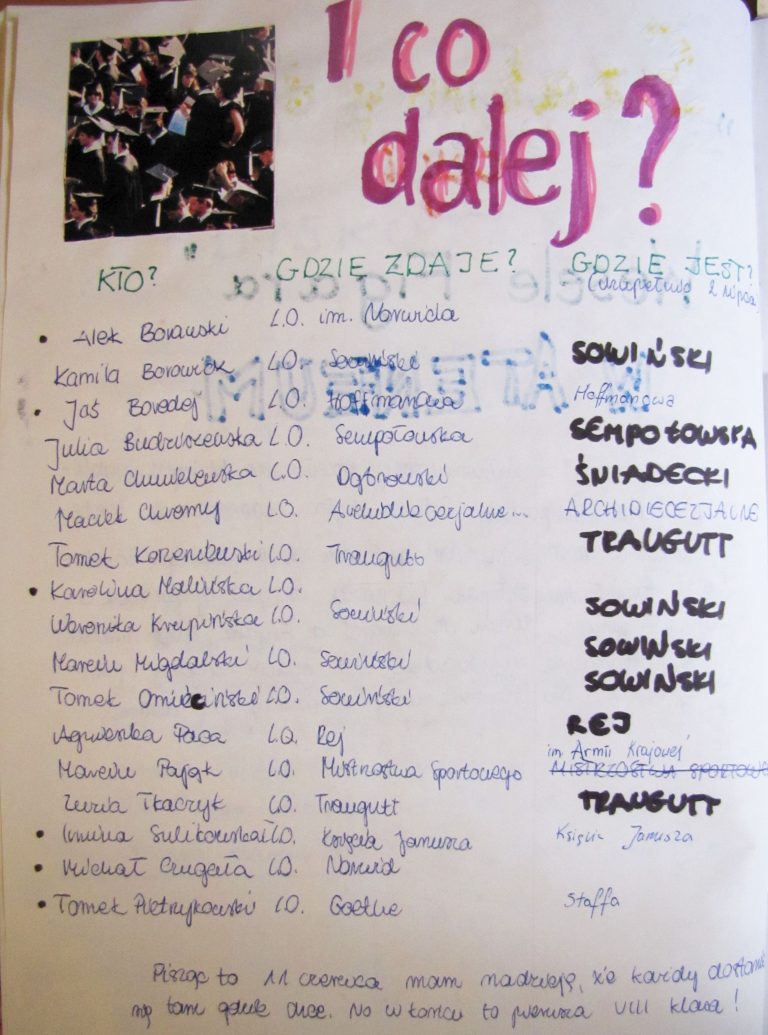 I co
dalej?
KTO? GDZIE ZDAJE? GDZIE JEST?
2 lipca)
Alek Borawski L.O. im. Norwida
Kamila Borowiak L.O. Sowiński SOWIŃSKI
Jaś L.O. Hoffmanowa Hoffmanowa
Julia L.O. Sempołowska SEMPOŁOWSKA
Marta Chmielewska L.O. ŚNIADECKI
Maciek Chromy L.O. Archidiecezjalne... ARCHIDIECEZJALNE
Tomek Korzeniewski L.O. Traugutt TRAUGUTT
Karolina Malińska L.O.
Weronika Krupińska L.O. Sowiński SOWIŃSKI
Marcin Migdalski L.O. Sowiński SOWIŃSKI
Tomek Omieciński L.O. Sowiński SOWIŃSKI
Agnieszka Paca L.O. Rej REJ
im. Armii Krajowej
Marcin Pająk L.O. Mistrzostwa Sportowego MISTRZOSTWA SPORTOWE
Zuzia Tkaczyk L.O. Traugutt TRAUGUTT
Sulikowska L.O. Księcia Janusza Księcia Janusza
Michał L.O. Norwid
Tomek Pietrzykowski L.O. Goethe Staffa
Pisząc to 11 czerwca mam nadzieję, że każdy dostanie
się tam gdzie chce. No w końcu to pierwsza VIII klasa!